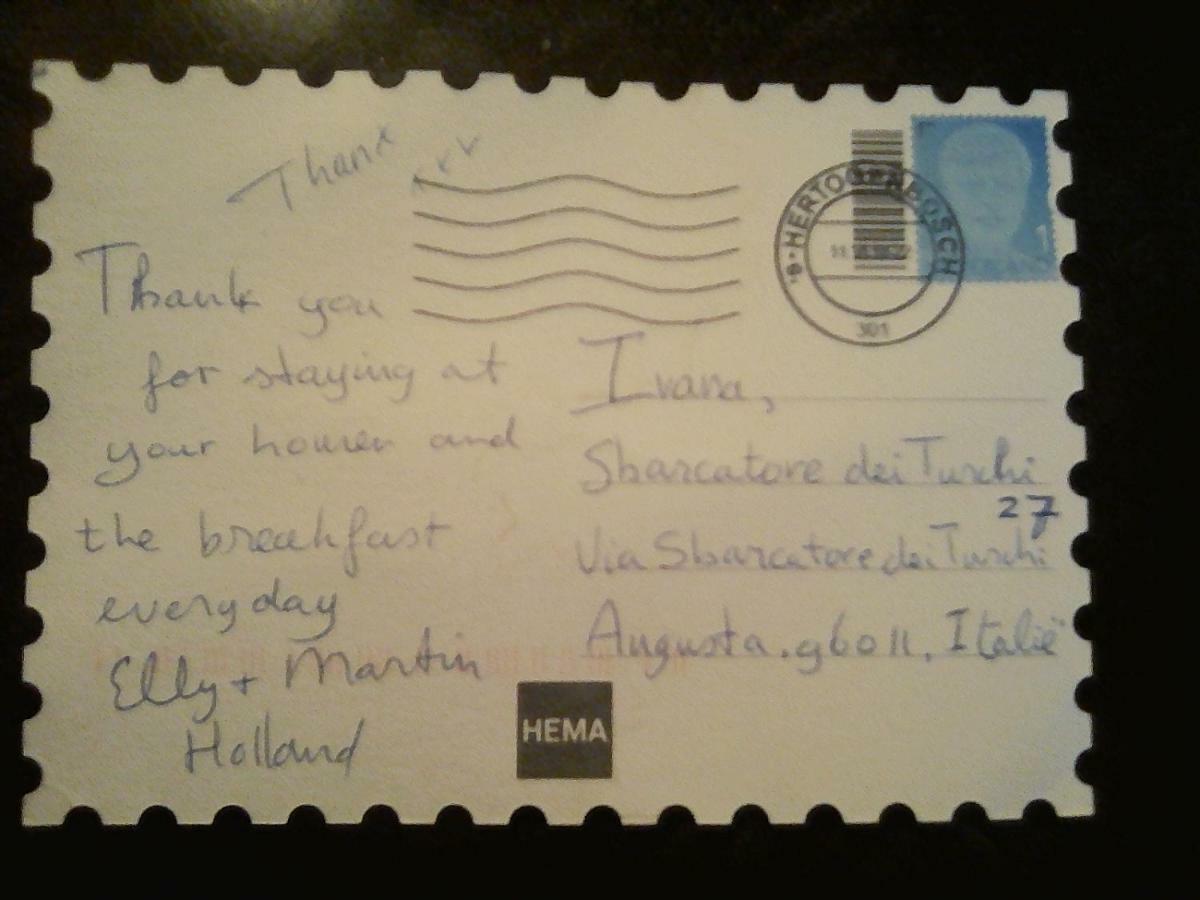 Thank
Thank you
for staying at
your housen and
the breakfast
everyday
Elly + Martin
Holland
's-HERTOGENBOSCH
301
1
Ivana,
Sbarcatore dei Turchi
27
Via Sbarcatore dei Turchi
Augusta. 96011, Italië
HEMA